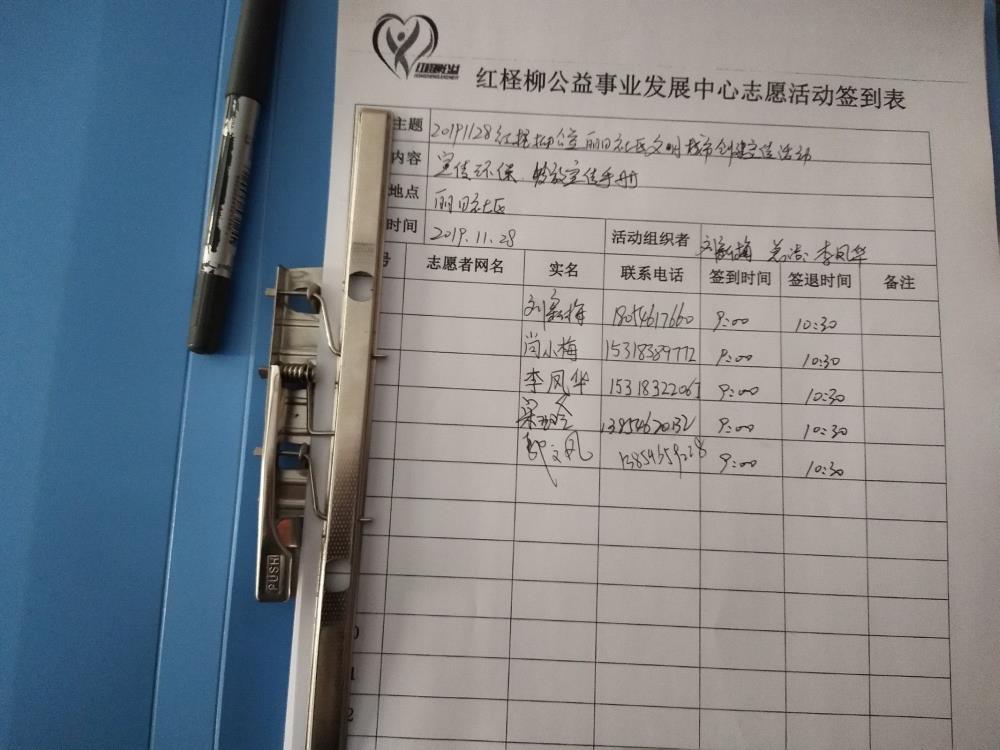 红柽柳公益
红柽柳公益事业发展中心志愿活动签到表
主题 20191128红柽柳公益丽日社区文明城市创建宣传活动
内容 宣传环保 发放宣传手册
地点 丽日社区
时间 2019.11.28 活动组织者 刘新梅 总结:李凤华
号 志愿者网名 实名 联系电话 签到时间 签退时间 备注
刘新梅 18054617660 9:00 10:30
尚小梅 15318389772 9:00 10:30
李凤华 1531832206 9:00 10:30
13954620132 9:00 10:30
文凤 9:00 10:30
PUSH
0
1
2